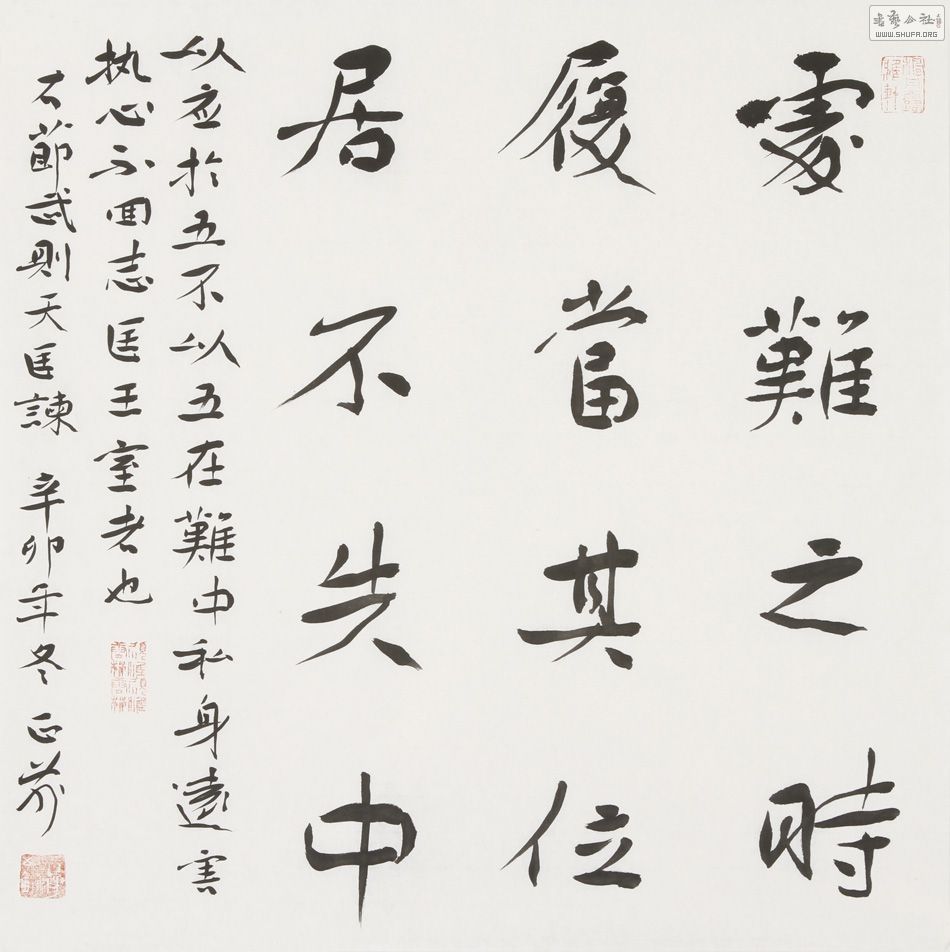 處難之時
履當其位
居不失中
以应於五不以五在難中私身遠害
执心不回志匡王室者也
右節武則天匡諫 辛卯年冬 正
書藝公社
WWW.SHUFA.ORG